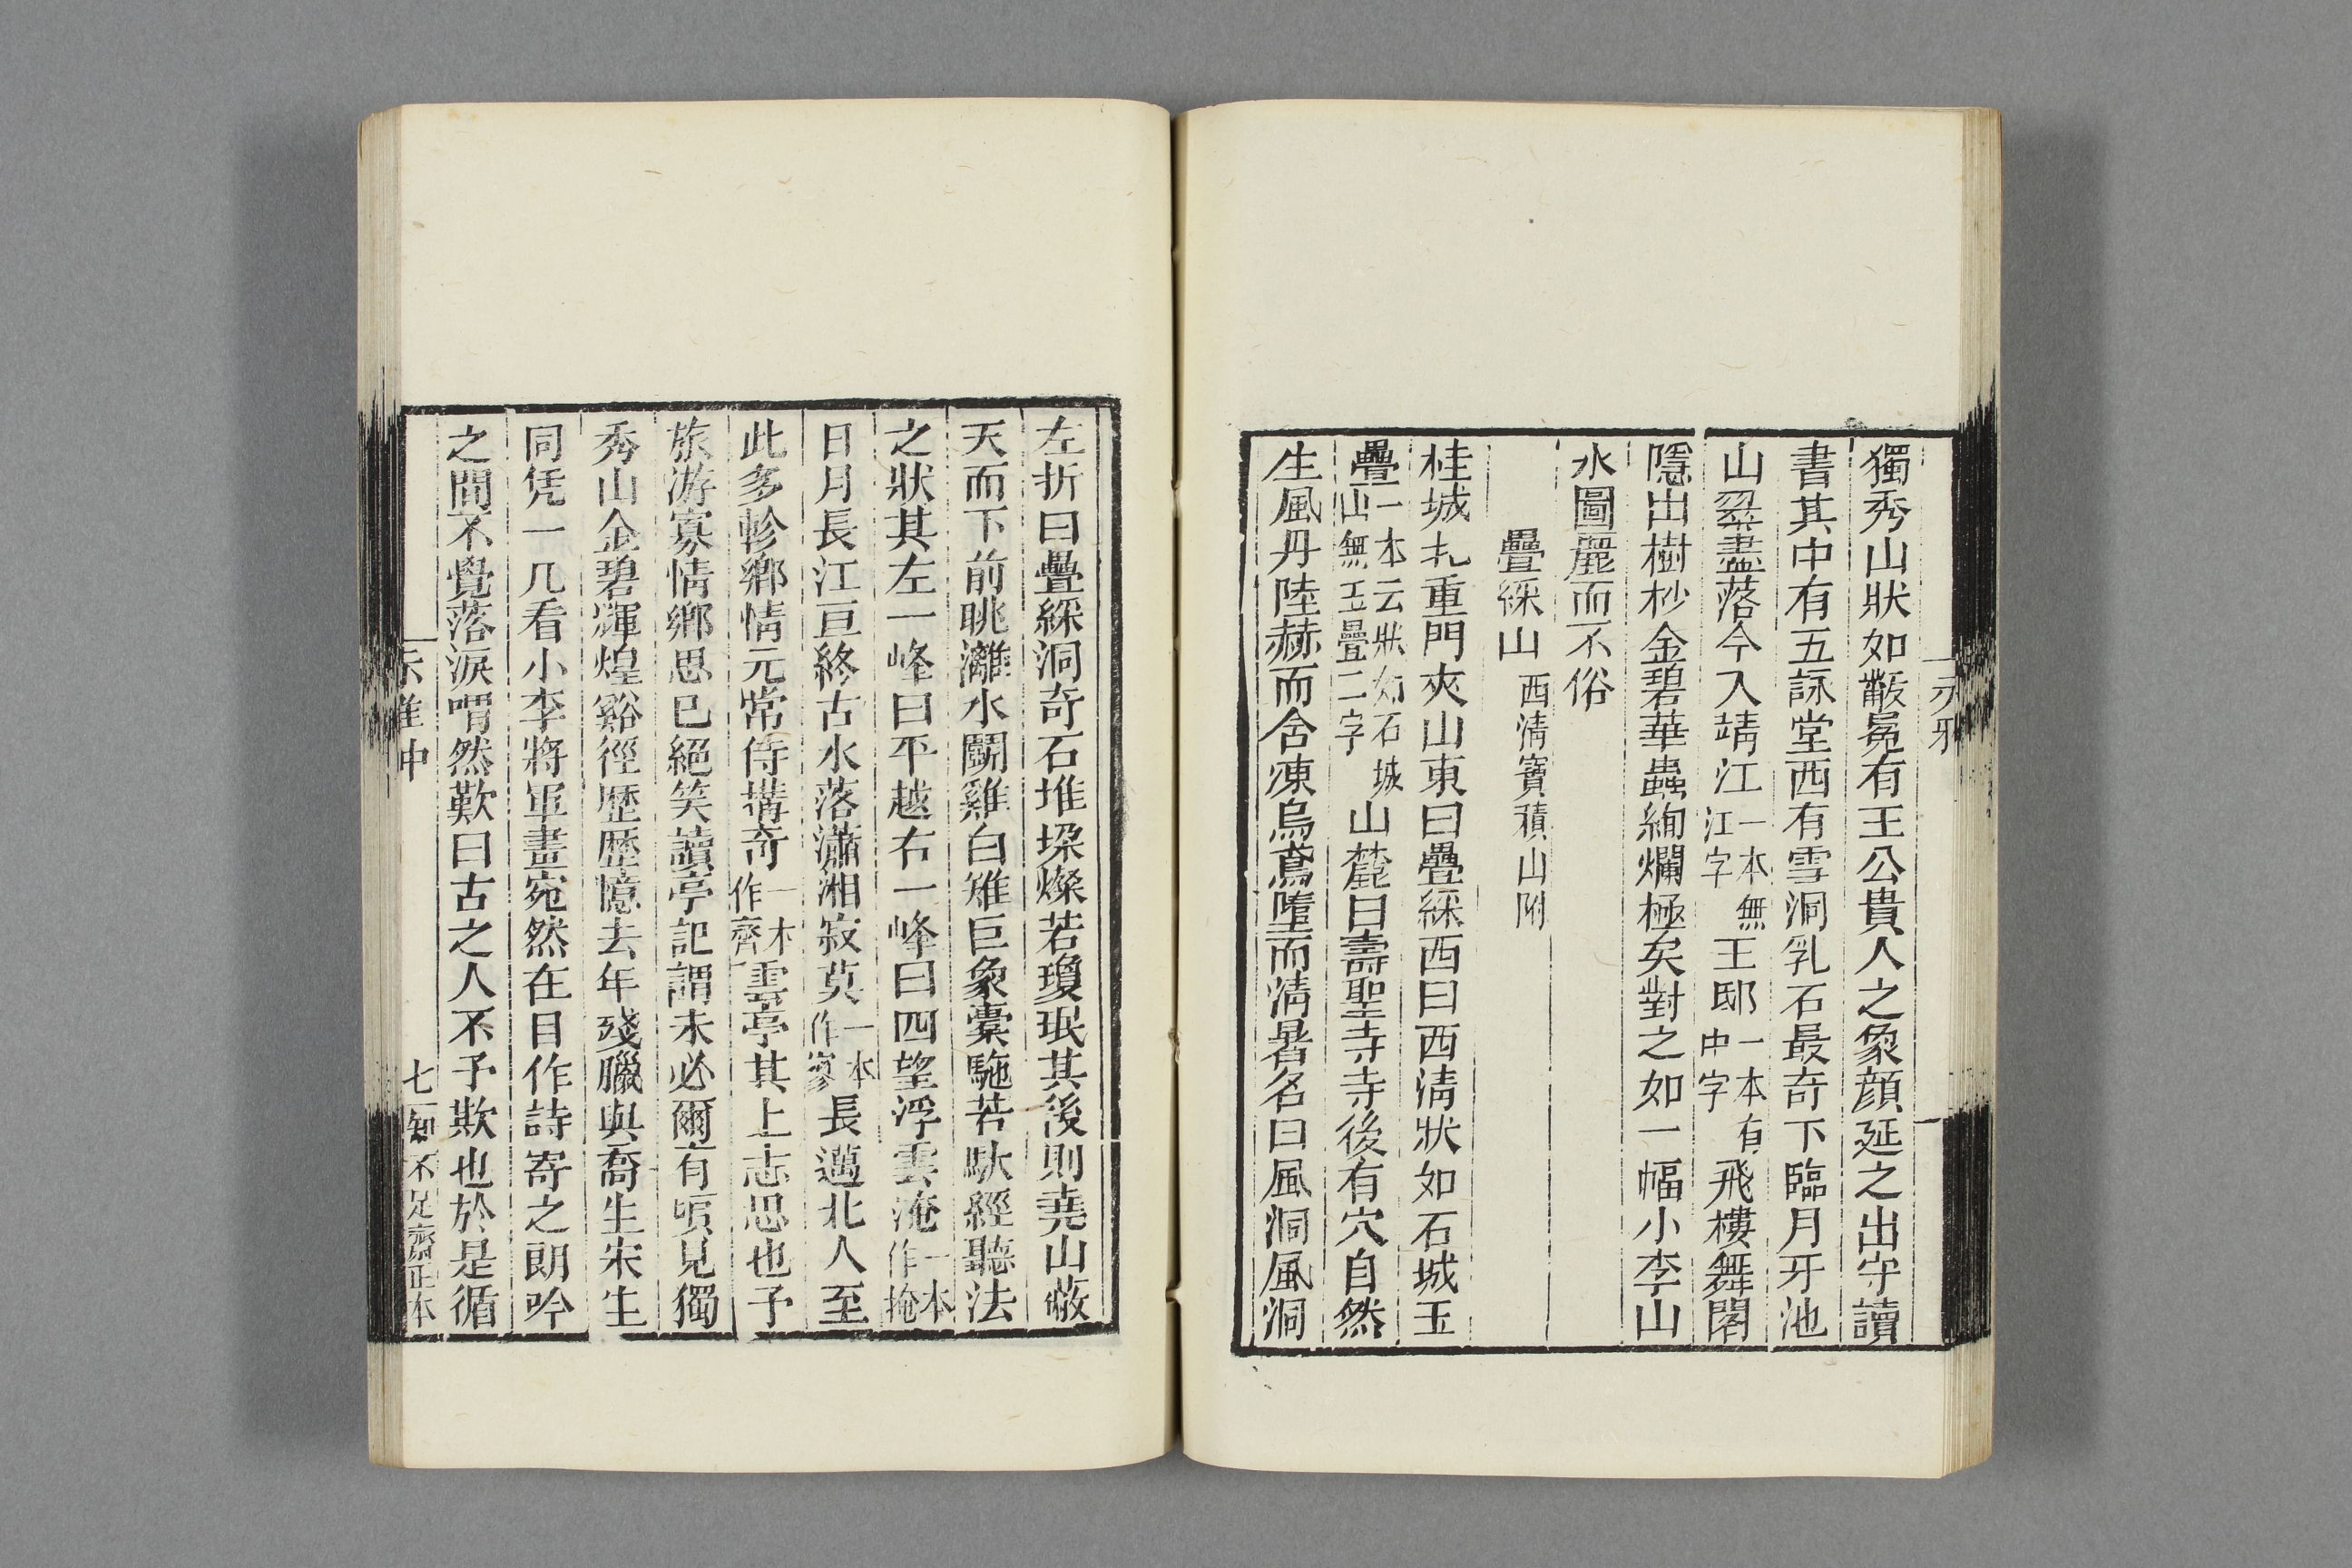 獨秀山狀如黻冕有王公貴人之象顔延之出守讀
書其中有五詠堂西有雪洞乳石最奇下臨月牙池
山翠盡落今入靖江一本無江字王邸一本有中字飛樓舞閣
隱出樹杪金碧華蟲絢爛極矣對之如一幅小李山
水圖麗而不俗
疊綵山西清寶積山附
桂城北重門夾山東曰疊綵西曰西清狀如石城玉
疊一本云狀如石城山無玉疊二字山麓曰壽聖寺寺後有穴自然
生風丹陸赫而含凍烏鳶墮而清暑名曰風洞風洞
左折曰疊綵洞奇石堆垜燦若瓊珉其後則堯山蔽
天而下前眺灕水鬭雞白雉巨象橐駞若馱經聽法
之狀其左一峰曰平越右一峰曰四望浮雲淹一本作掩
日月長江亘終古水落瀟湘寂莫一本作寥長邁北人至
此多軫鄉情元常侍搆奇一本作齊雲亭其上志思也予
旅游寡情鄉思已絕笑讀亭記謂未必爾有頃見獨
秀山金碧輝煌谿徑歷歷憶去年殘臘與喬生宋生
同凭一几看小李將軍畫宛然在目作詩寄之朗吟
之間不覺落淚喟然歎曰古之人不予欺也於是循
七 知不足齋正本